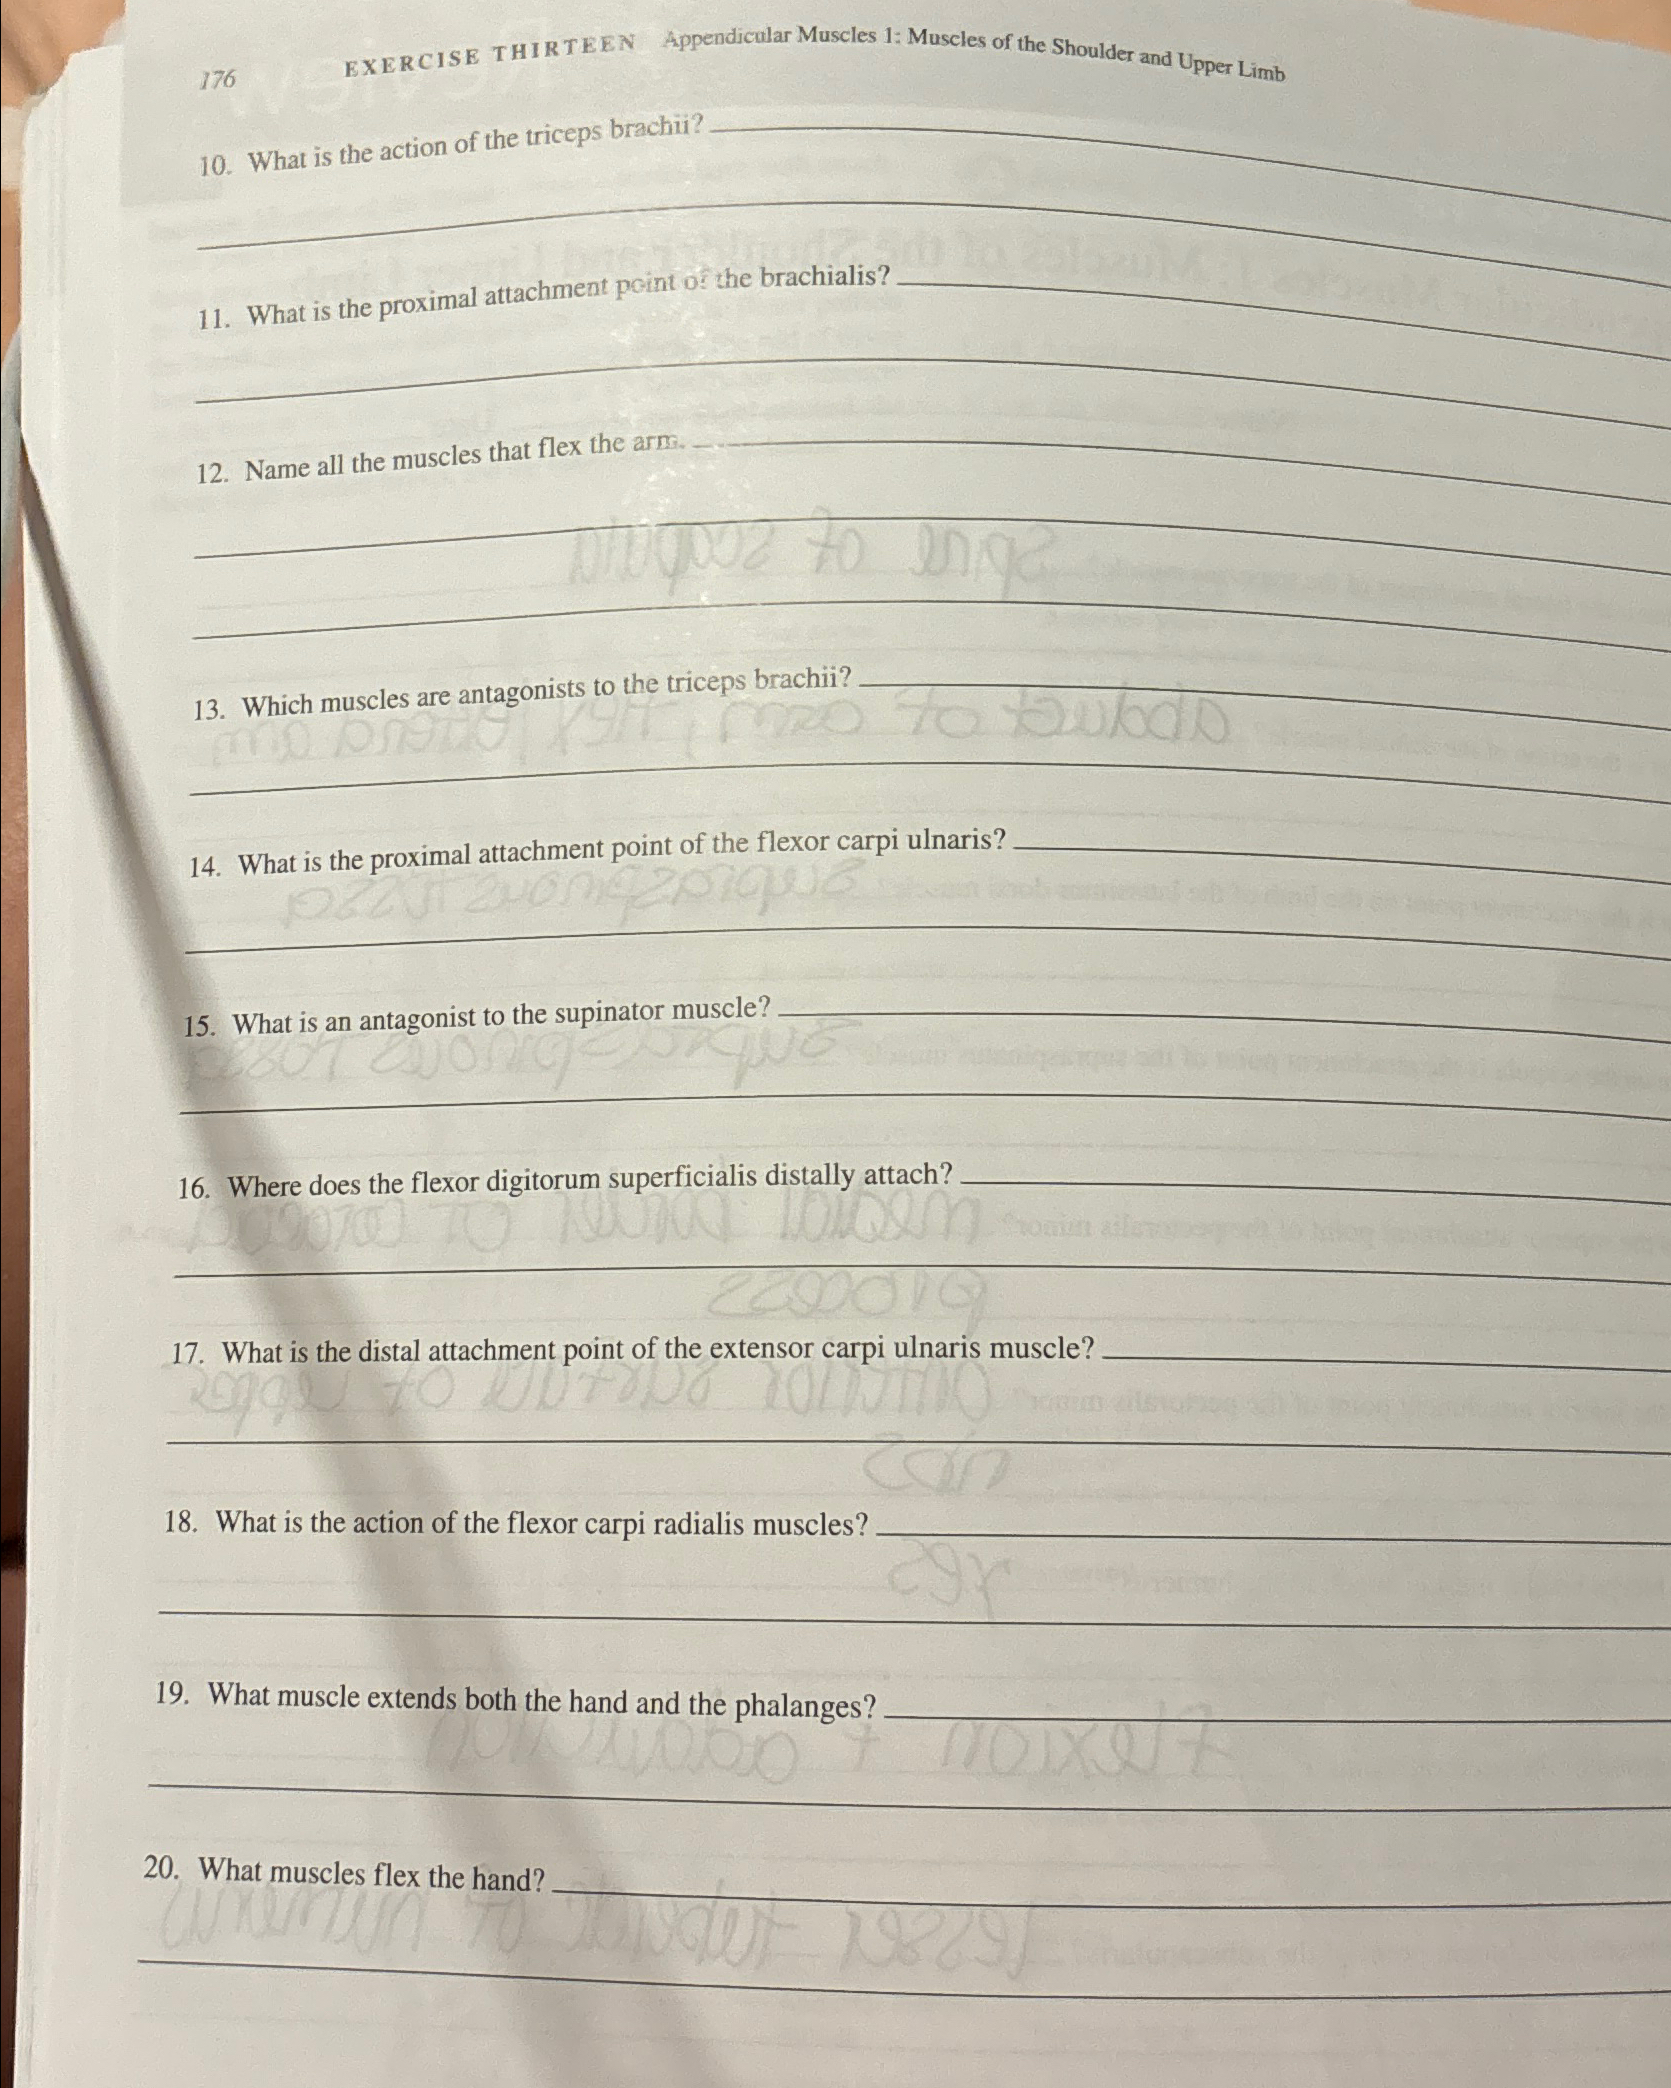 176 EXERCISE THIRTEEN Appendicular Muscles 1: Muscles of the Shoulder and Upper Limb
10. What is the action of the triceps brachii?
11. What is the proximal attachment point of the brachialis?
12. Name all the muscles that flex the arm.
13. Which muscles are antagonists to the triceps brachii?
14. What is the proximal attachment point of the flexor carpi ulnaris?
15. What is an antagonist to the supinator muscle?
16. Where does the flexor digitorum superficialis distally attach?
17. What is the distal attachment point of the extensor carpi ulnaris muscle?
18. What is the action of the flexor carpi radialis muscles?
19. What muscle extends both the hand and the phalanges?
20. What muscles flex the hand?